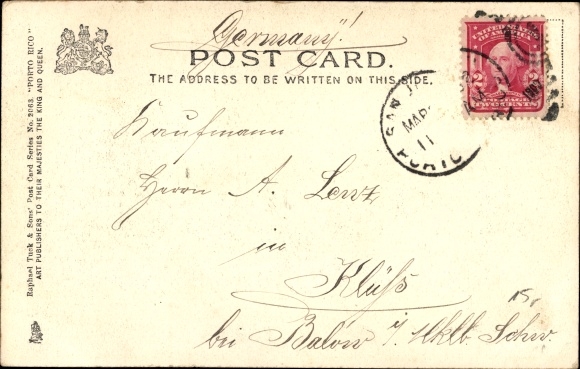 Germany!
POST CARD.
THE ADDRESS TO BE WRITTEN ON THIS SIDE.
UNITED STATES
OF AMERICA
2 2
TWO CENTS
SAN J
MAR
11
PORTO
Kaufmann
Herrn A. Lenz
in
Klüss
bei Balow i/ Mklb. Schw.
Raphael Tuck & Sons' Post Card Series No. 2063. "PORTO RICO"
ART PUBLISHERS TO THEIR MAJESTIES THE KING AND QUEEN.